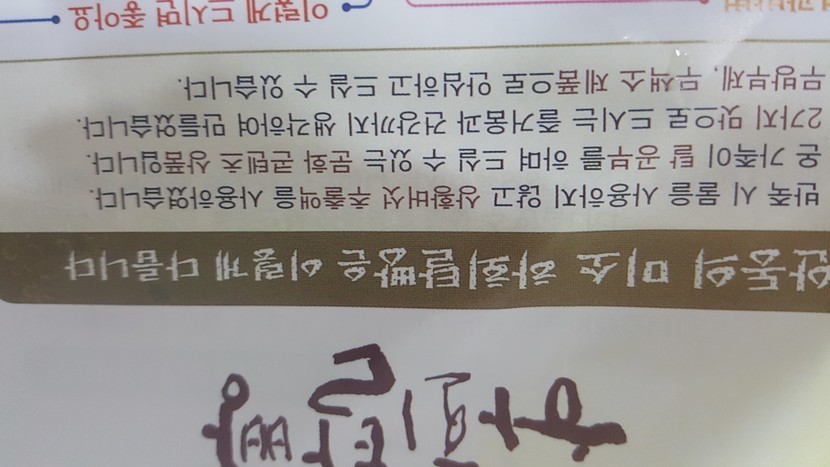 하회탈빵
안동의 미소 하회탈빵은 이렇게 다릅니다
반죽 시 물을 사용하지 않고 상황버섯 추출액을 사용하였습니다.
온 가족이 탈 공부를 하며 드실 수 있는 문화 콘텐츠 상품입니다.
2가지 맛으로 드시는 즐거움과 건강까지 생각하여 만들었습니다.
무방부제, 무색소 제품으로 안심하고 드실 수 있습니다.
이렇게 드시면 좋아요